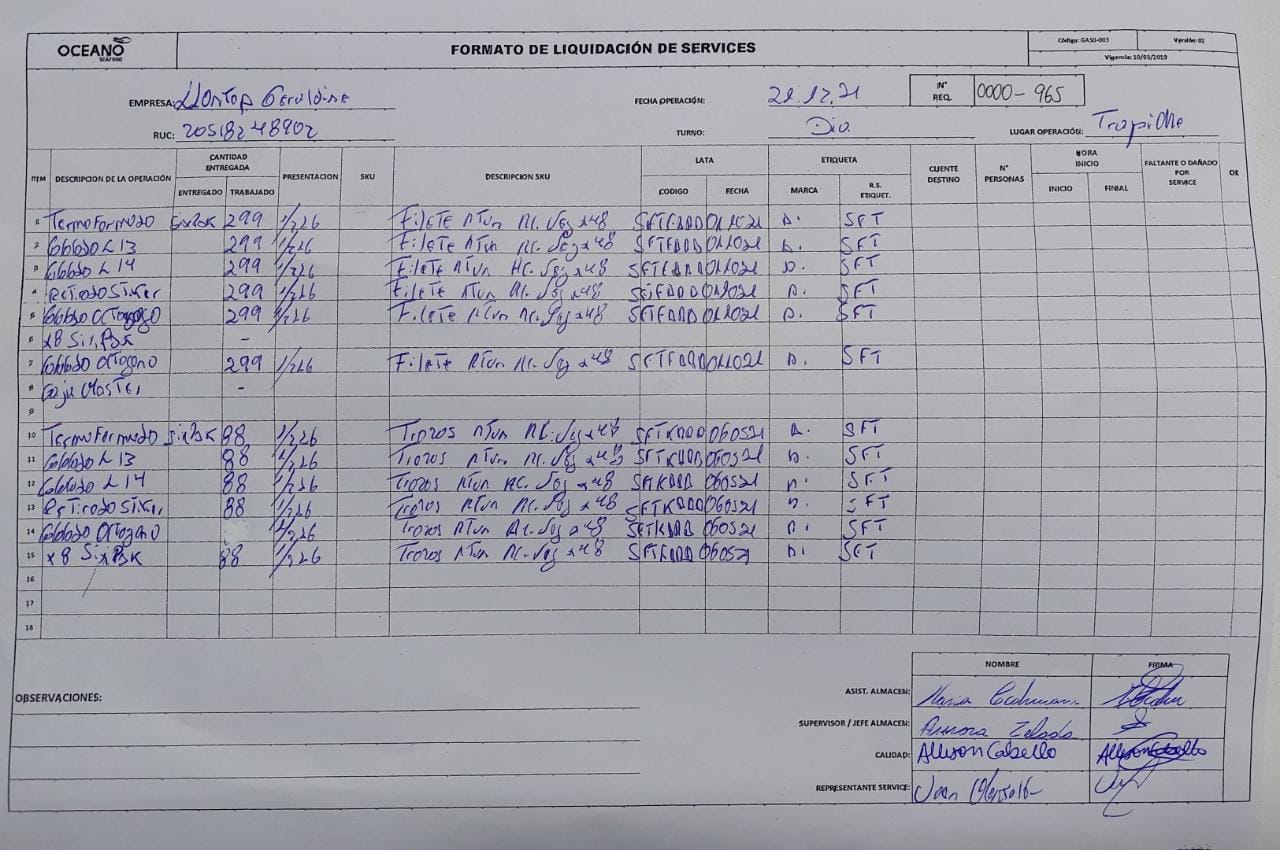 OCEANO
SEAFOOD
FORMATO DE LIQUIDACIÓN DE SERVICES
Código: GASO-005
Versión: 02
Vigencia: 10/05/2019
EMPRESA: Llontop Geraldine
FECHA OPERACIÓN: 21.12.21
N° REQ. 0000-965
RUC: 20518248902
TURNO: Dia
LUGAR OPERACIÓN: Trapiche
ITEM DESCRIPCION DE LA OPERACIÓN CANTIDAD ENTREGADA ENTREGADO TRABAJADO PRESENTACION SKU DESCRIPCION SKU LATA CODIGO FECHA ETIQUETA MARCA R.S. ETIQUET. CLIENTE DESTINO N° PERSONAS HORA INICIO INICIO FINIAL FALTANTE O DAÑADO POR SERVICE OK
1 Termoformado sixPak 299 1/226 Filete Atun Ac. Veg x48 011021 A. SFT
2 L 13 299 1/226 Filete Atun Ac. Veg x48 011021 A. SFT
3 L 14 299 1/226 Filete Atun Ac. Veg x48 011021 A. SFT
4 299 1/226 Filete Atun Ac. Veg x48 011021 A. SFT
5 Octogono 299 1/226 Filete Atun Ac. Veg x48 011021 A. SFT
6 x8 Six Pak -
7 Octogono 299 1/226 Filete Atun Ac. Veg x48 011021 A. SFT
8 Caja Master -
9
10 Termoformado sixPak 88 1/226 Trozos Atun Ac. Veg x48 060521 A. SFT
11 L 13 88 1/226 Trozos Atun Ac. Veg x48 060521 A. SFT
12 L 14 88 1/226 Trozos Atun Ac. Veg x48 060521 A. SFT
13 88 1/226 Trozos Atun Ac. Veg x48 060521 A. SFT
14 Octogono 1/226 Trozos Atun Ac. Veg x48 060521 A. SFT
15 x8 Six Pak 88 1/226 Trozos Atun Ac. Veg x48 060521 A. SFT
16
17
18
NOMBRE FIRMA
OBSERVACIONES:
ASIST. ALMACEN: Maria
SUPERVISOR / JEFE ALMACEN: Aurora Zelada
CALIDAD: Allison Cabello
REPRESENTANTE SERVICE: Juan